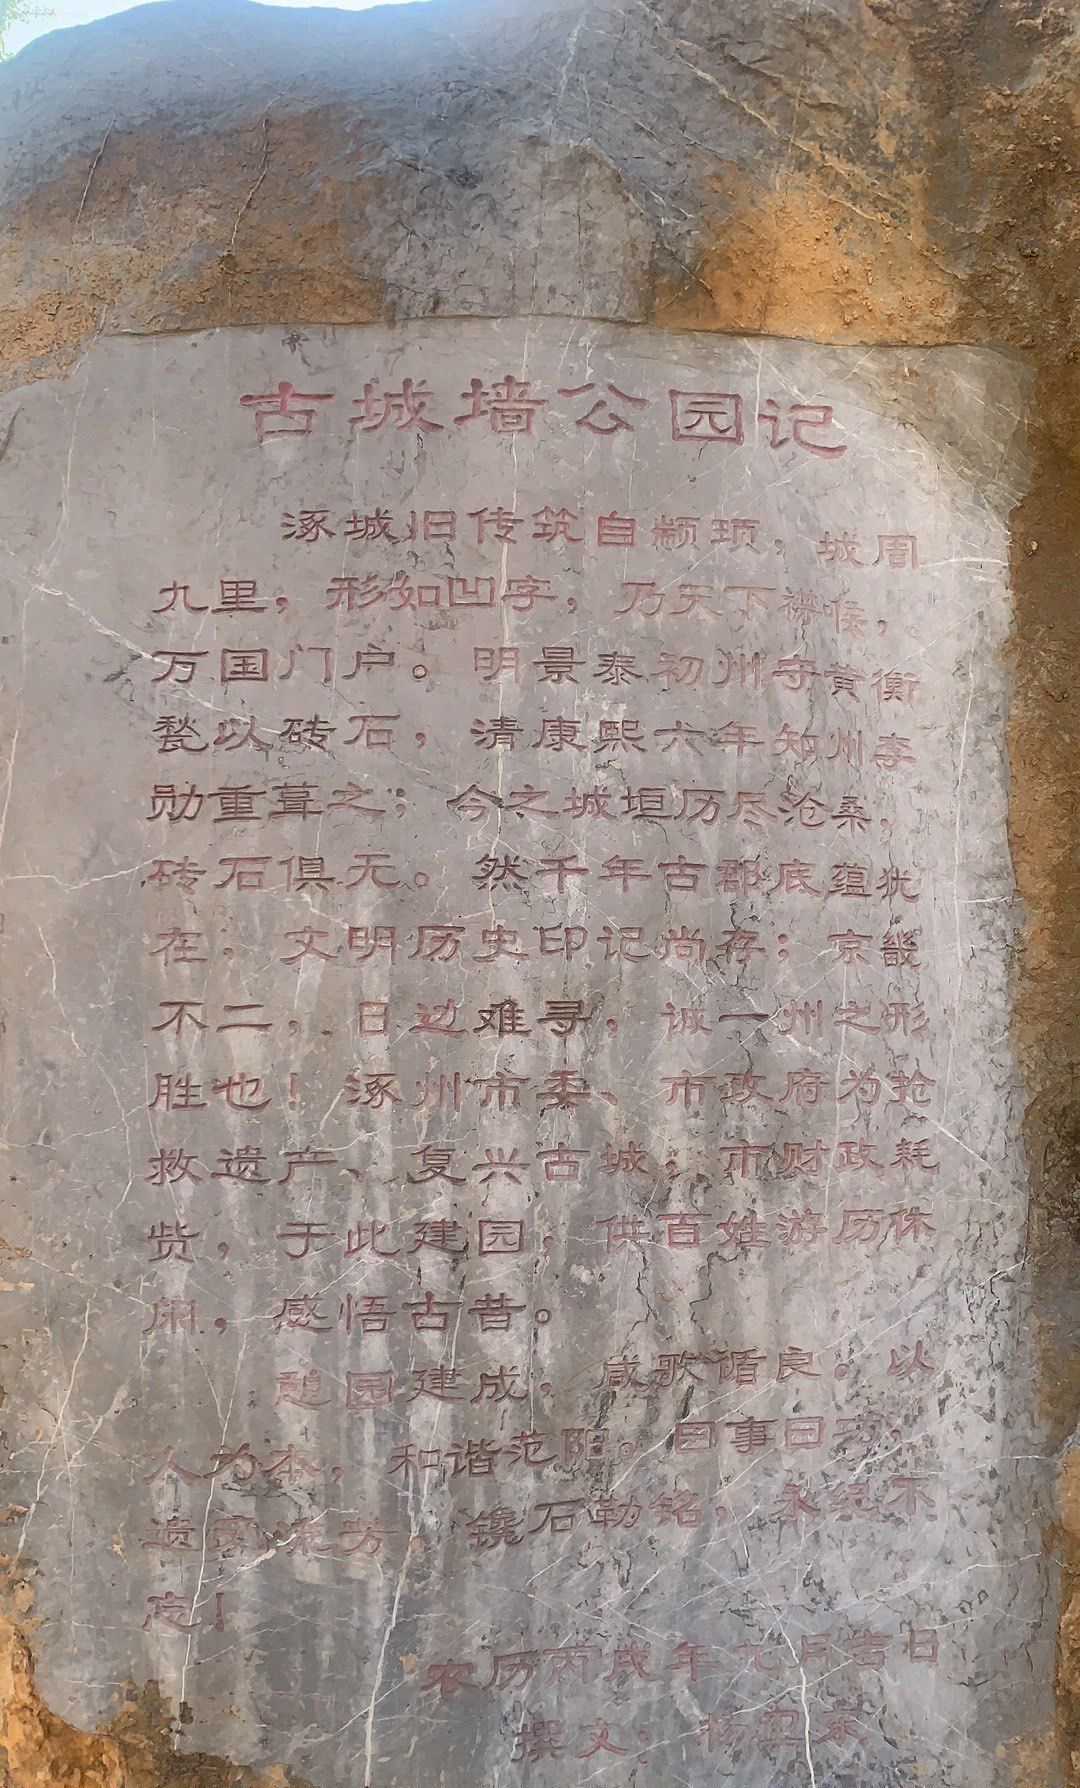 古城墙公园记
涿城旧传筑自颛顼，城周
九里，形如凹字，乃天下襟喉，
万国门户。明景泰初州守黄衡
甃以砖石，清康熙六年知州李
勋重葺之；今之城垣历尽沧桑，
砖石俱无。然千年古郡底蕴犹
在，文明历史印记尚存；京畿
不二，日边难寻，诚一州之形
胜也！涿州市委、市政府为抢
救遗产、复兴古城，市财政耗
赀，于此建园，供百姓游历休
闲，感悟古昔。
憩园建成，咸歌循良。以
人为本，和谐范阳。曰事曰功，
遗流芳，镵石勒铭，永纪不
忘！
农历丙戌年九月吉日
撰文：杨卫东